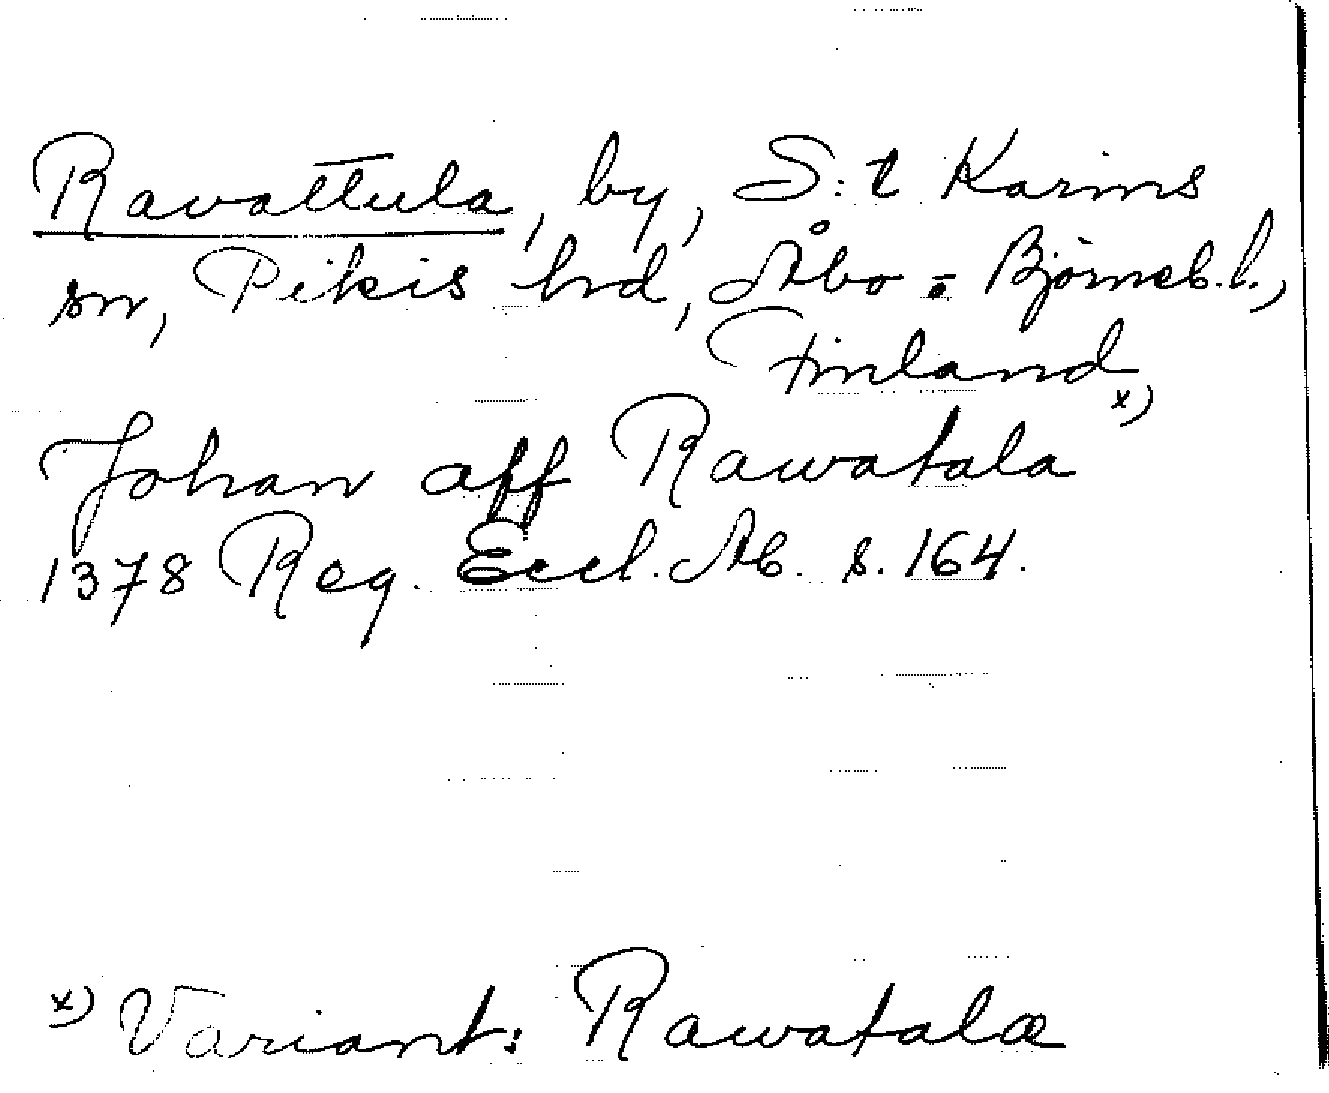 Ravattula, by, S:t Karins
sn, Pikis hrd, Åbo = Björneb. l.,
Finland
Johan aff Rawatala x)
1378 Reg. Eccl. Ab. s. 164.
x) Variant: Rawatalæ